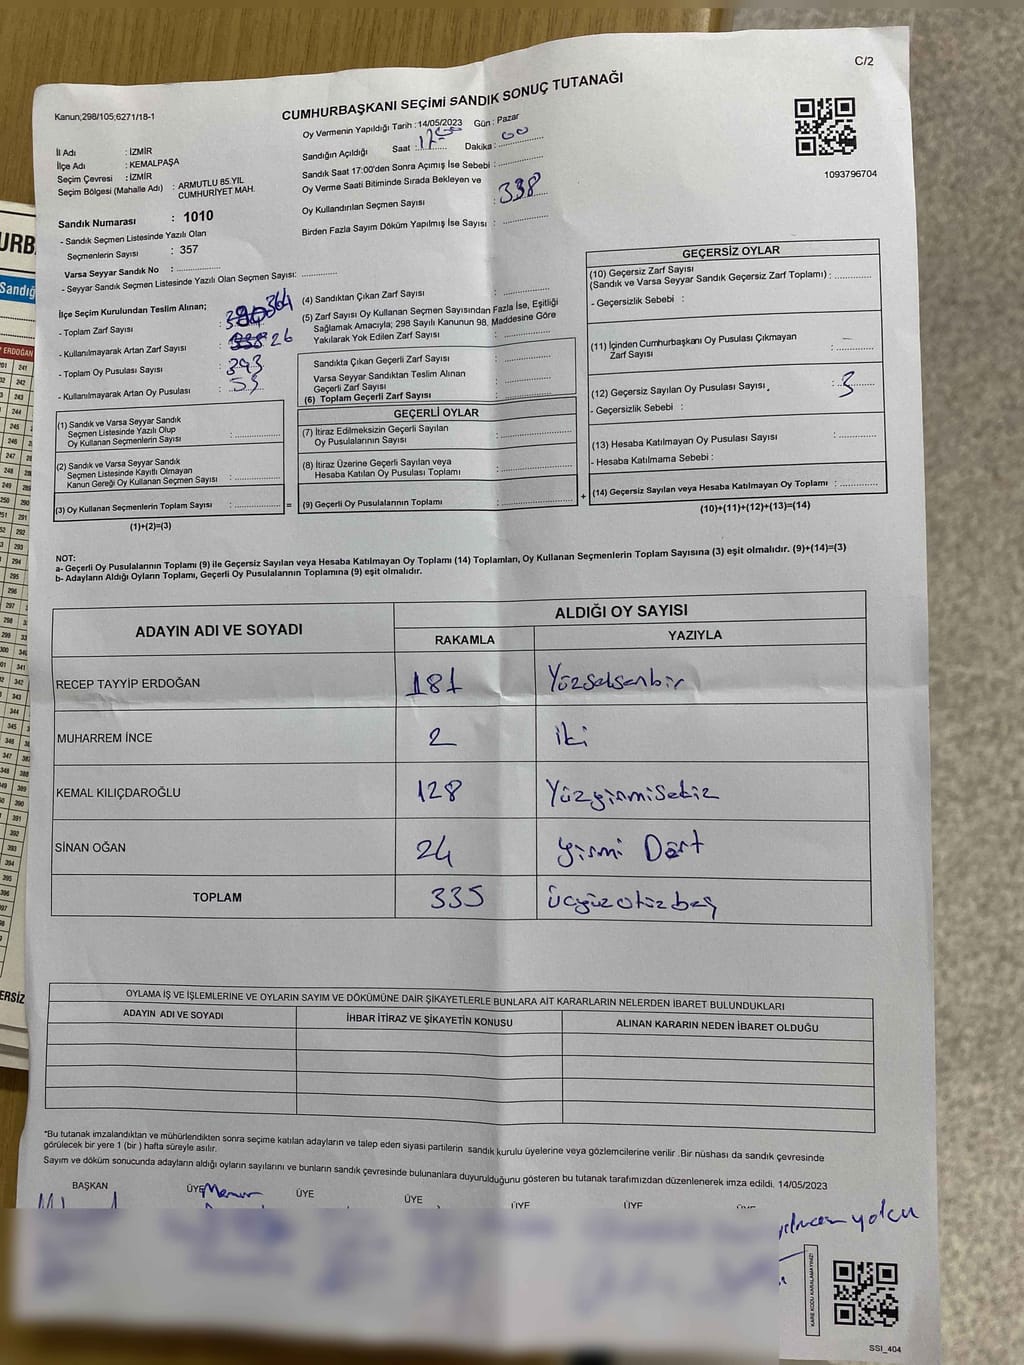 C/2
Kanun;298/105;6271/18-1
CUMHURBAŞKANI SEÇİMİ SANDIK SONUÇ TUTANAĞI
Oy Vermenin Yapıldığı Tarih :14/05/2023 Gün : Pazar
Sandığın Açıldığı Saat : 17:00 Dakika: 00
Sandık Saat 17:00'den Sonra Açımış İse Sebebi :
Oy Verme Saati Bitiminde Sırada Bekleyen ve
Oy Kullandırılan Seçmen Sayısı : 338
Birden Fazla Sayım Döküm Yapılmış İse Sayısı :
1093796704
İl Adı : İZMİR
İlçe Adı : KEMALPAŞA
Seçim Çevresi : İZMİR
Seçim Bölgesi (Mahalle Adı) : ARMUTLU 85.YIL
CUMHURİYET MAH.
Sandık Numarası : 1010
- Sandık Seçmen Listesinde Yazılı Olan
Seçmenlerin Sayısı : 357
Varsa Seyyar Sandık No :
- Seyyar Sandık Seçmen Listesinde Yazılı Olan Seçmen Sayısı:
İlçe Seçim Kurulundan Teslim Alınan;
- Toplam Zarf Sayısı : 364
- Kullanılmayarak Artan Zarf Sayısı : 26
- Toplam Oy Pusulası Sayısı : 393
- Kullanılmayarak Artan Oy Pusulası : 53
(1) Sandık ve Varsa Seyyar Sandık
Seçmen Listesinde Yazılı Olup
Oy Kullanan Seçmenlerin Sayısı :
(2) Sandık ve Varsa Seyyar Sandık
Seçmen Listesinde Kayıtlı Olmayan
Kanun Gereği Oy Kullanan Seçmen Sayısı :
(3) Oy Kullanan Seçmenlerin Toplam Sayısı : =
(1)+(2)=(3)
(4) Sandıktan Çıkan Zarf Sayısı :
(5) Zarf Sayısı Oy Kullanan Seçmen Sayısından Fazla İse, Eşitliği
Sağlamak Amacıyla; 298 Sayılı Kanunun 98. Maddesine Göre
Yakılarak Yok Edilen Zarf Sayısı :
Sandıkta Çıkan Geçerli Zarf Sayısı :
Varsa Seyyar Sandıktan Teslim Alınan
Geçerli Zarf Sayısı :
(6) Toplam Geçerli Zarf Sayısı :
GEÇERLİ OYLAR
(7) İtiraz Edilmeksizin Geçerli Sayılan
Oy Pusulalarının Sayısı :
(8) İtiraz Üzerine Geçerli Sayılan veya
Hesaba Katılan Oy Pusulası Toplamı :
(9) Geçerli Oy Pusulalarının Toplamı : +
GEÇERSİZ OYLAR
(10) Geçersiz Zarf Sayısı
(Sandık ve Varsa Seyyar Sandık Geçersiz Zarf Toplamı) :
- Geçersizlik Sebebi :
(11) İçinden Cumhurbaşkanı Oy Pusulası Çıkmayan
Zarf Sayısı :
(12) Geçersiz Sayılan Oy Pusulası Sayısı : 3
- Geçersizlik Sebebi :
(13) Hesaba Katılmayan Oy Pusulası Sayısı :
- Hesaba Katılmama Sebebi :
(14) Geçersiz Sayılan veya Hesaba Katılmayan Oy Toplamı :
(10)+(11)+(12)+(13)=(14)
NOT:
a- Geçerli Oy Pusulalarının Toplamı (9) ile Geçersiz Sayılan veya Hesaba Katılmayan Oy Toplamı (14) Toplamları, Oy Kullanan Seçmenlerin Toplam Sayısına (3) eşit olmalıdır. (9)+(14)=(3)
b- Adayların Aldığı Oyların Toplamı, Geçerli Oy Pusulalarının Toplamına (9) eşit olmalıdır.
ADAYIN ADI VE SOYADI ALDIĞI OY SAYISI
RAKAMLA YAZIYLA
RECEP TAYYİP ERDOĞAN 181 Yüzseksenbir
MUHARREM İNCE 2 iki
KEMAL KILIÇDAROĞLU 128 Yüzyirmisekiz
SİNAN OĞAN 24 yirmi Dört
TOPLAM 335 üçyüzotuzbeş
OYLAMA İŞ VE İŞLEMLERİNE VE OYLARIN SAYIM VE DÖKÜMÜNE DAİR ŞİKAYETLERLE BUNLARA AİT KARARLARIN NELERDEN İBARET BULUNDUKLARI
ADAYIN ADI VE SOYADI İHBAR İTİRAZ VE ŞİKAYETİN KONUSU ALINAN KARARIN NEDEN İBARET OLDUĞU
*Bu tutanak imzalandıktan ve mühürlendikten sonra seçime katılan adayların ve talep eden siyasi partilerin sandık kurulu üyelerine veya gözlemcilerine verilir .Bir nüshası da sandık çevresinde
görülecek bir yere 1 (bir ) hafta süreyle asılır.
Sayım ve döküm sonucunda adayların aldığı oyların sayılarını ve bunların sandık çevresinde bulunanlara duyurulduğunu gösteren bu tutanak tarafımızdan düzenlenerek imza edildi. 14/05/2023
BAŞKAN ÜYE Memur ÜYE ÜYE ÜYE ÜYE ÜYE
yolcu
KARE KODU KARALAMAYINIZ!
SSI_404